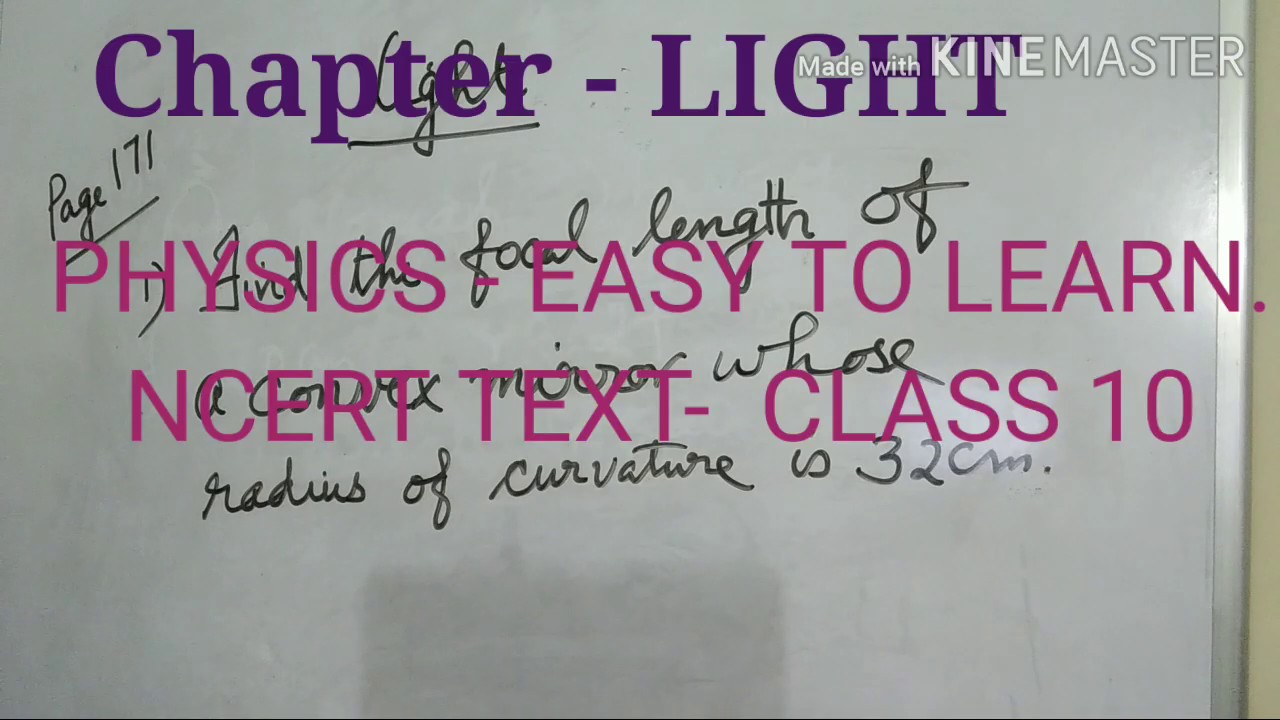 Chapter - LIGHT
Made with KINEMASTER
Light
Page 171
PHYSICS - EASY TO LEARN.
1) Find the focal length of
NCERT TEXT- CLASS 10
a convex mirror whose
radius of curvature is 32cm.